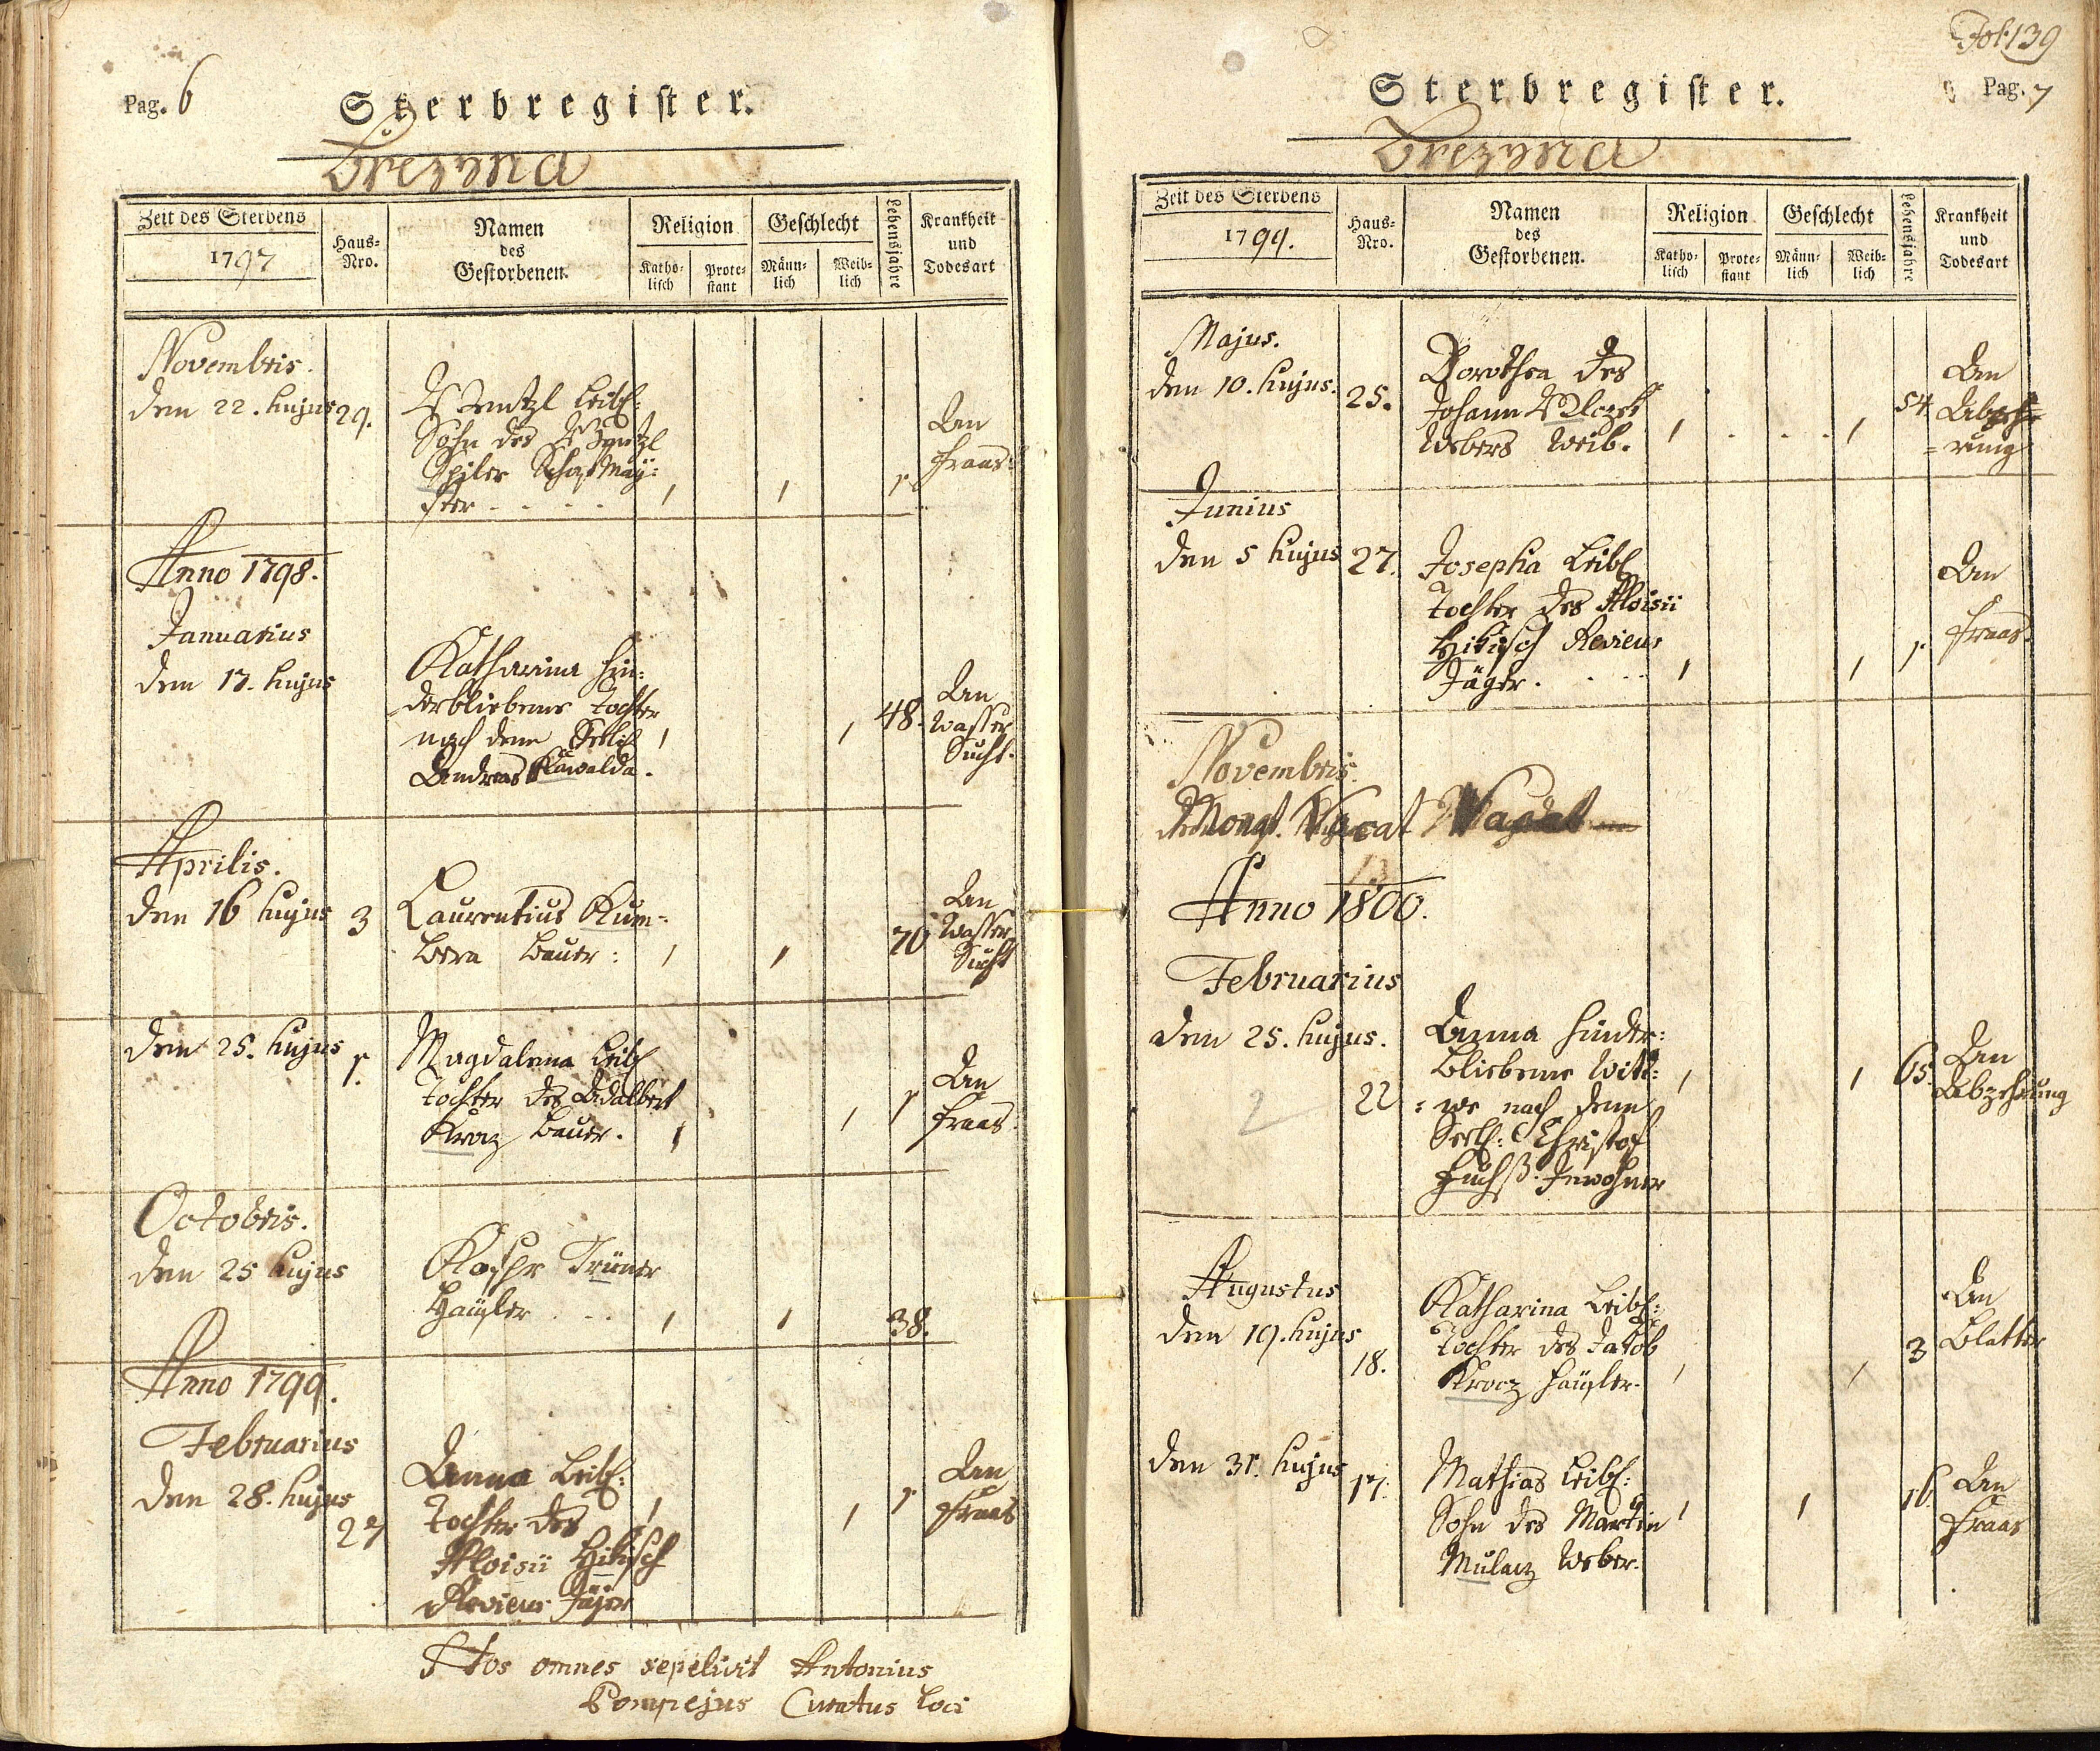 Pag. 6
Sterbregister.
Brezyna
Zeit des Sterbens
1797
Haus-
Nro.
Namen
des
Gestorbenen.
Religion
Katho-
lisch
Prote-
stant
Geschlecht
Männ-
lich
Weib-
lich
Lebensjahre
Krankheit
und
Todesart
Novembris.
den 22. hujus 29.
Wentzl Leibl:
Sohn des Wentzl
Spiler Schafmay:
ster . . . . 1 1 1
An
Fraas
Anno 1798.
Januarius
den 17. hujus
Katharina hin:
derbliebene Tochter
nach dem Seelig
Andreas Kawalda.
1 1 48.
An
Wasser
Sucht.
Aprilis.
den 16 hujus 3
Laurentius Kum-
bera Bauer: 1 1 70
An
Wasser
Sucht
den 25. hujus 1.
Magdalena Leibl
Tochter des Adalbert
Kroz Bauer. 1 1 1
An
Fraas.
Octobris.
den 25 hujus
Kaspr Trüner
Häusler . . . 1 1 38.
Anno 1799.
Februarius
den 28. hujus
27
Anna Leibl:
Tochter des
Aloisii Hikisch
Reviers Jäjer
1 1 1
An
Fraas
Hos omnes sepelivit Antonius
Pompejus Curatus Loci
Fol. 139
Pag. 7
Sterbregister.
Brezyna
Zeit des Sterbens
1799.
Haus-
Nro.
Namen
des
Gestorbenen.
Religion
Katho-
lisch
Prote-
stant
Geschlecht
Männ-
lich
Weib-
lich
Lebensjahre
Krankheit
und
Todesart
Majus.
den 10. hujus. 25.
Dorothea des
Johann Wlczek
Webers Weib. 1 . . . . 1 54
An
Abzeh=
=rung
Junius
den 5 hujus 27.
Josepha Leibl
Tochter des Aloisii
Hikisch Reviers
Jäger. . . . 1 1 1
An
Fraas.
Novembris
Vacat
Anno 1800.
Februarius
den 25. hujus.
2 22
Anna hinder:
bliebene Witt:
: we nach dem
Seel: Christof
Fuchß. Inwohner
1 1 65.
An
Abzehrung
Augustus
den 19. hujus
18.
Katharina Leibl:
Tochter des Jakob
Krocz Häusler. 1 1 3
An
Blatter
den 31. hujus 17.
Mathias Leibl:
Sohn des Martin
Mulacz Weber.
1 1 16.
An
Fraas